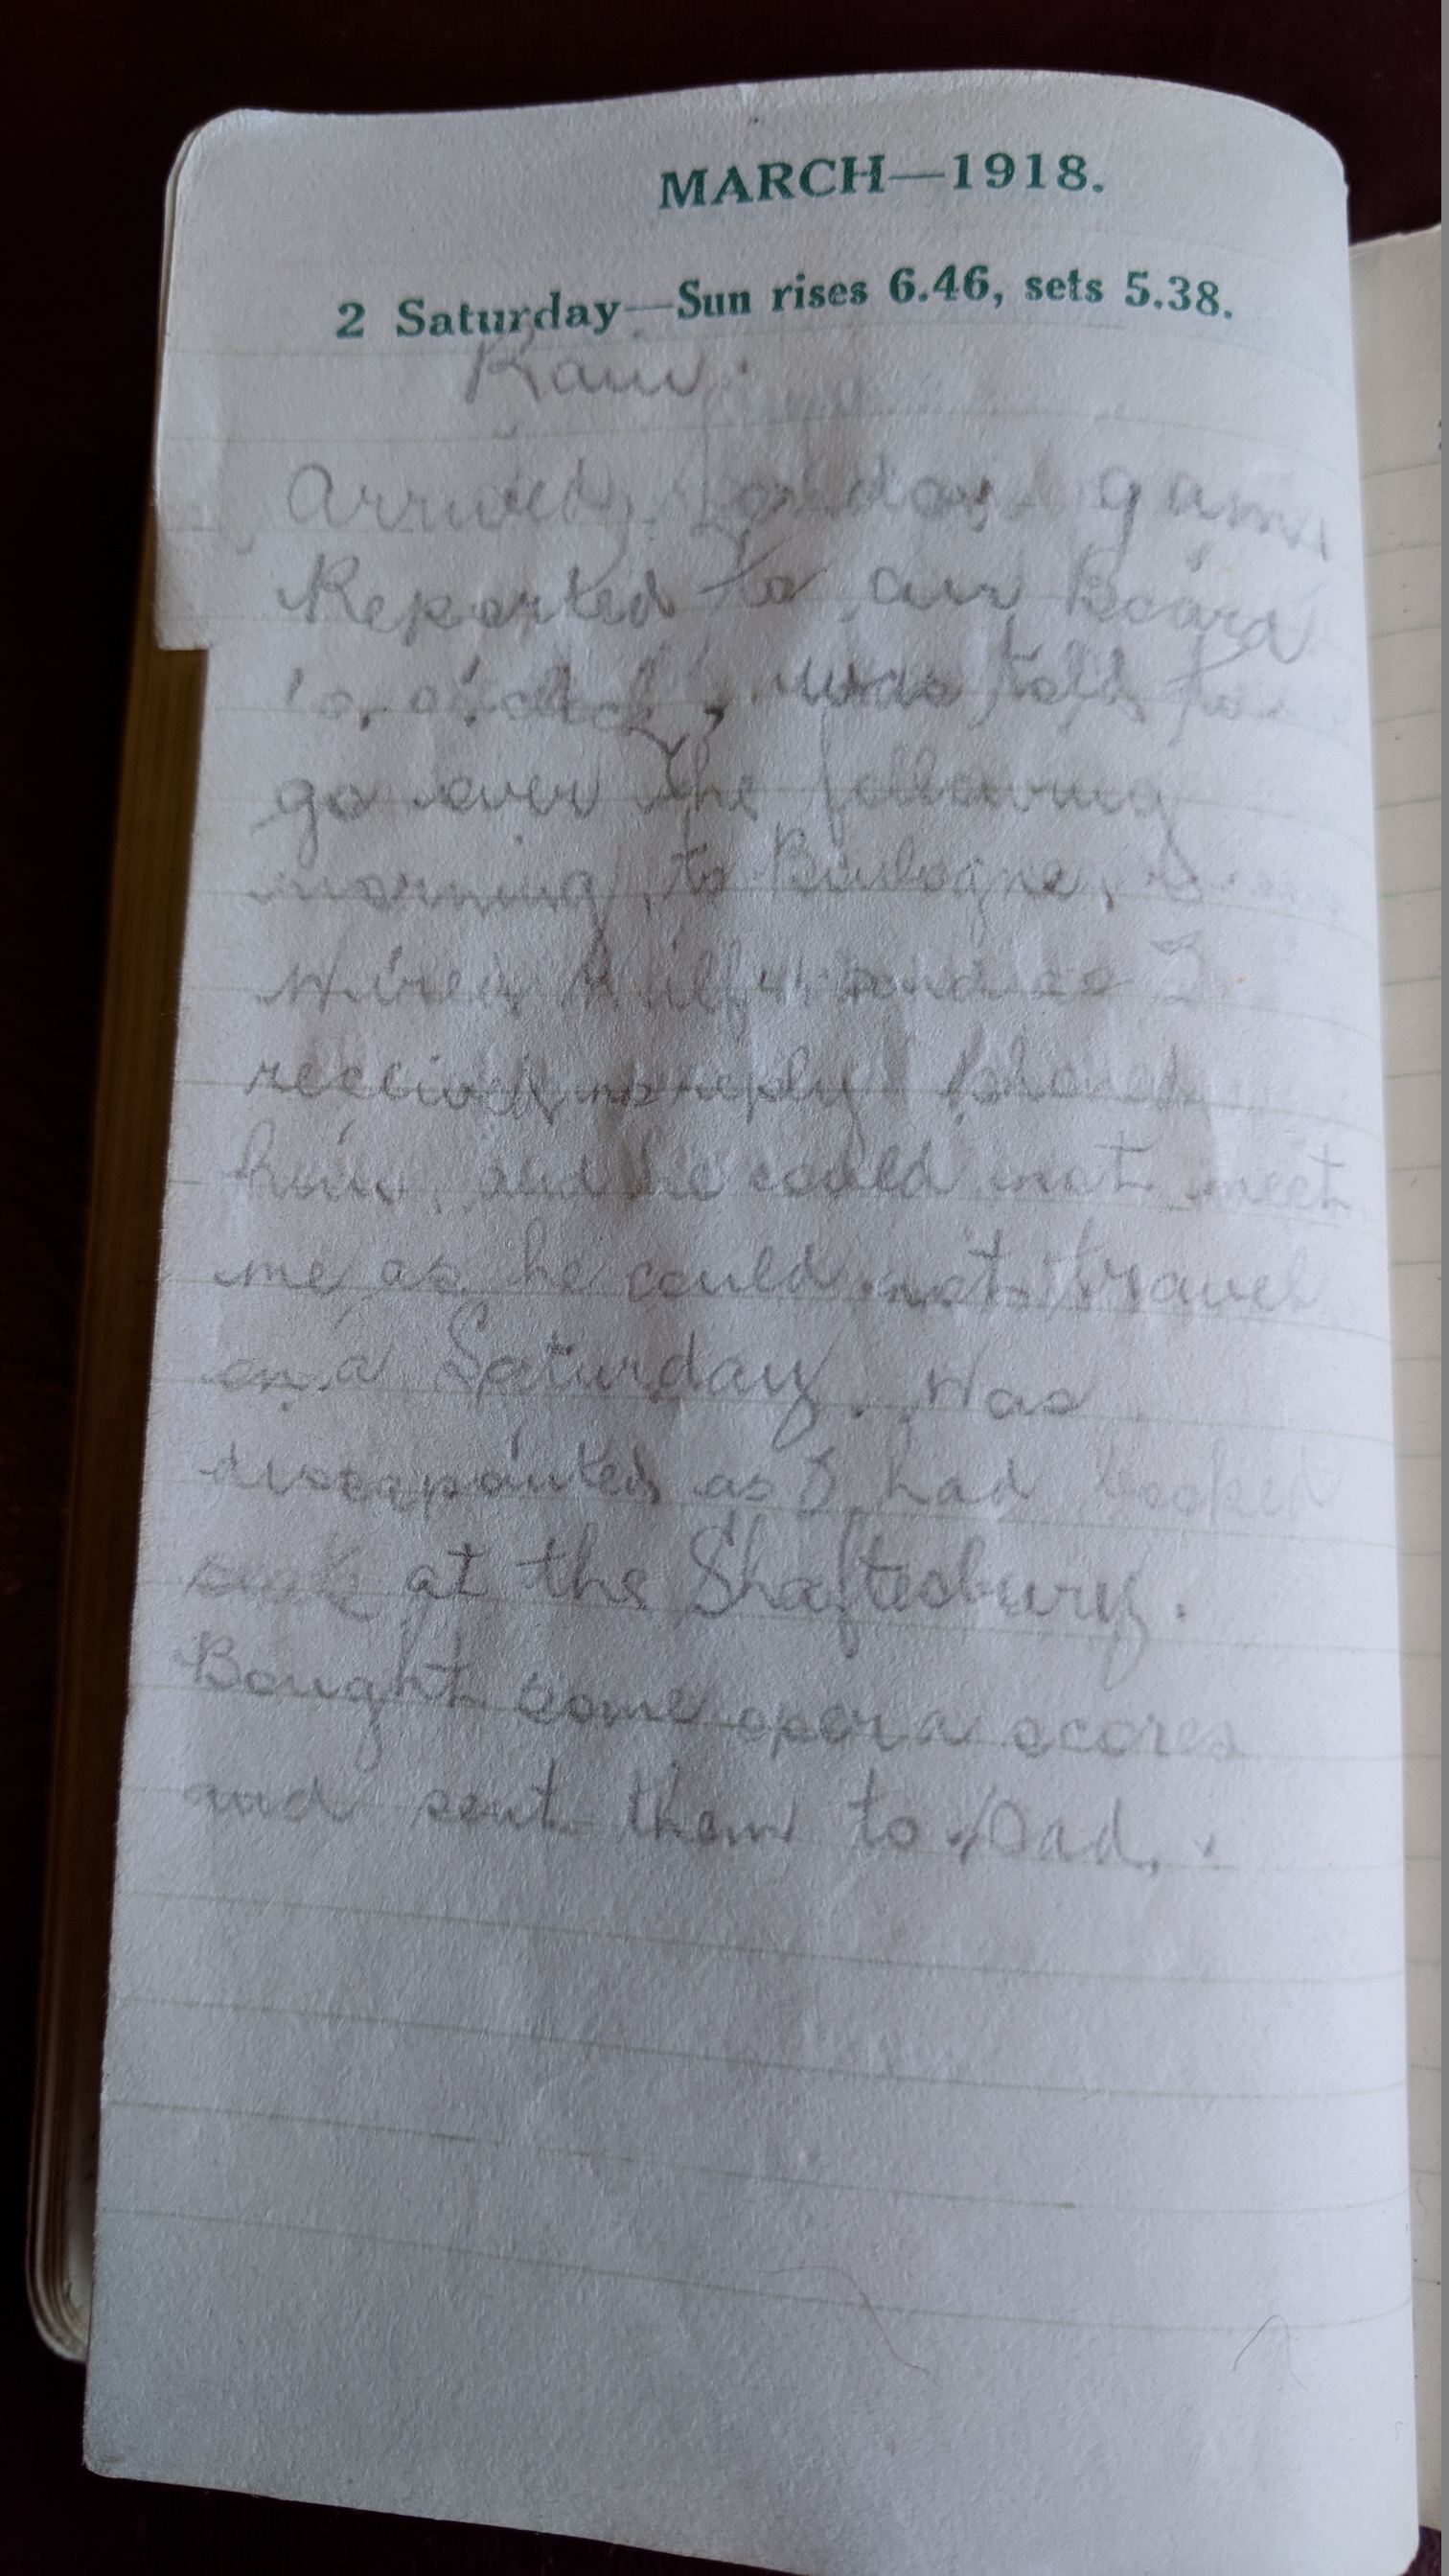 MARCH—1918.
2 Saturday—Sun rises 6.46, sets 5.38.
Rain.
Arrived 9 am,
Reported to Air Board
o'clock, was told to
go over the following
morning to Boulogne,
Wired and as I
received no reply phoned
him, and he could not meet
me as he could not travel
on a Saturday. Was
disappointed as I had booked
at the Shaftesbury.
Bought some opera scores
and sent them to Dad.